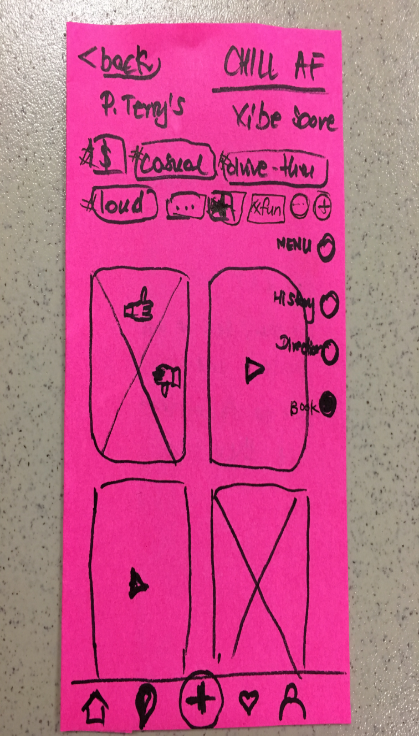 < back CHILL AF
P. Terry's Vibe Score
#$ #casual #drive-thru
#loud ... #fun
MENU
History
Direction
Book